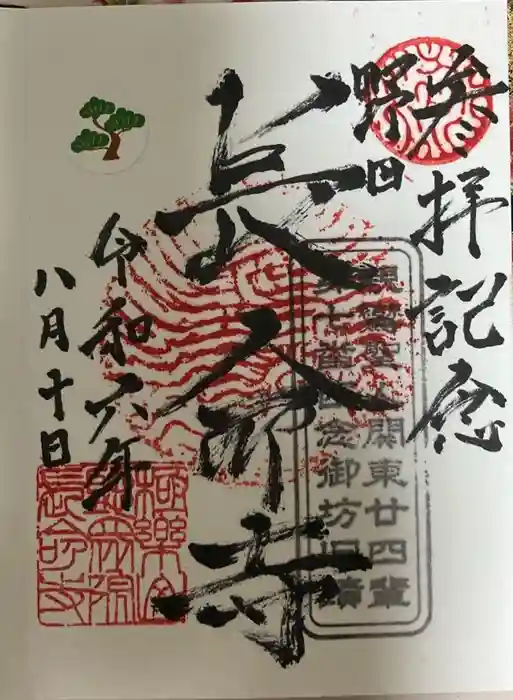 参拝記念
野田
親鸞聖人関東廿四輩
第七番西念御坊旧蹟
長命寺
令和六年
八月十日
極樂山
長命寺